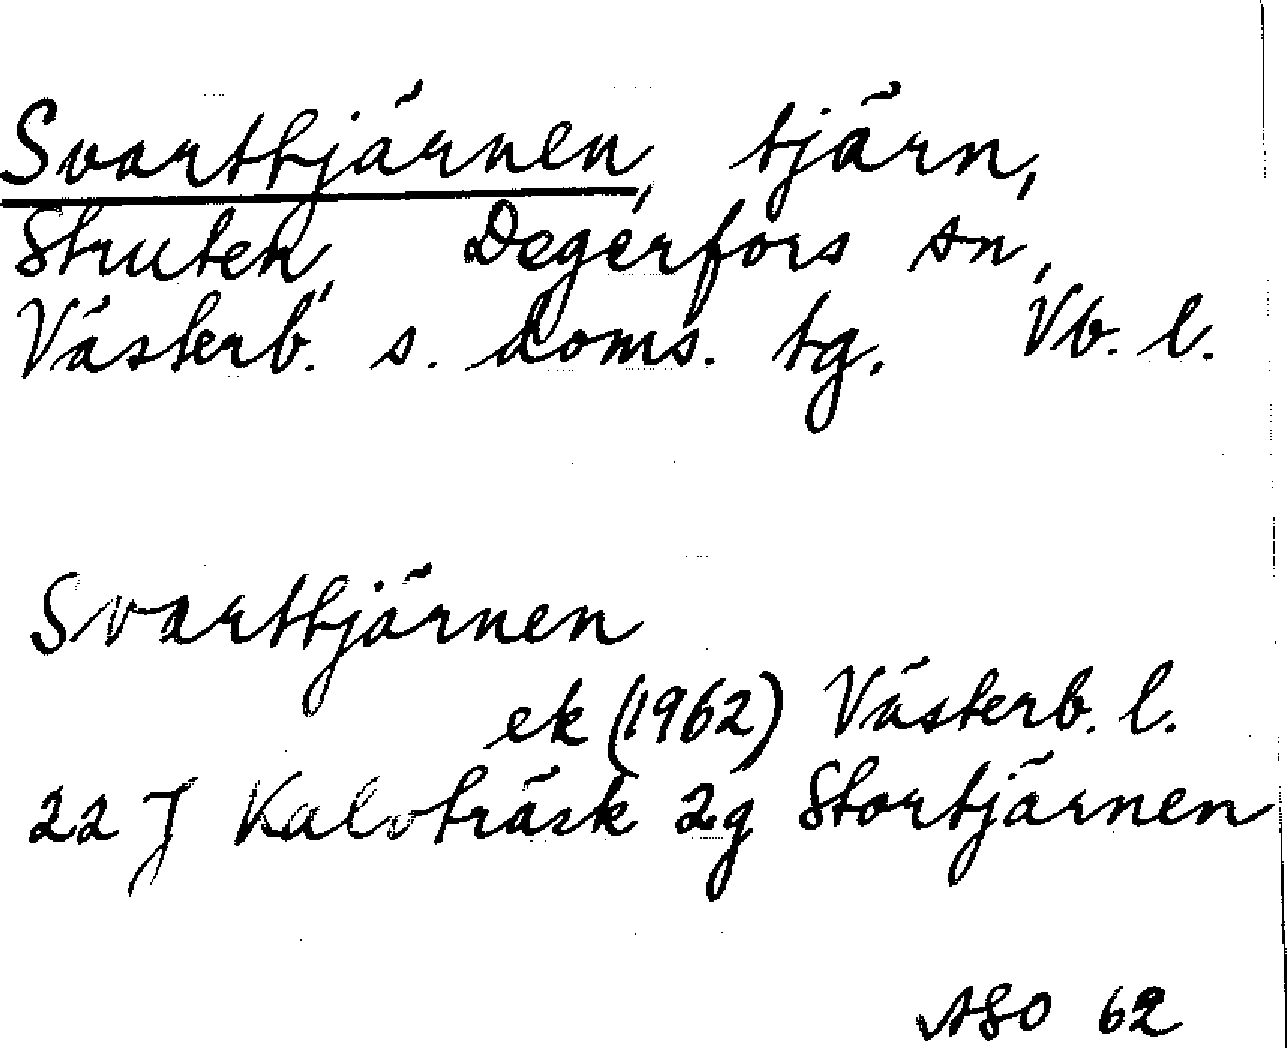 Svarttjärnen, tjärn,
Struten, Degerfors sn,
Västerb. s. doms. tg. Vb. l.
Svarttjärnen
ek (1962) Västerb. l.
22 J Kalvträsk 2g Stortjärnen
ASO 62